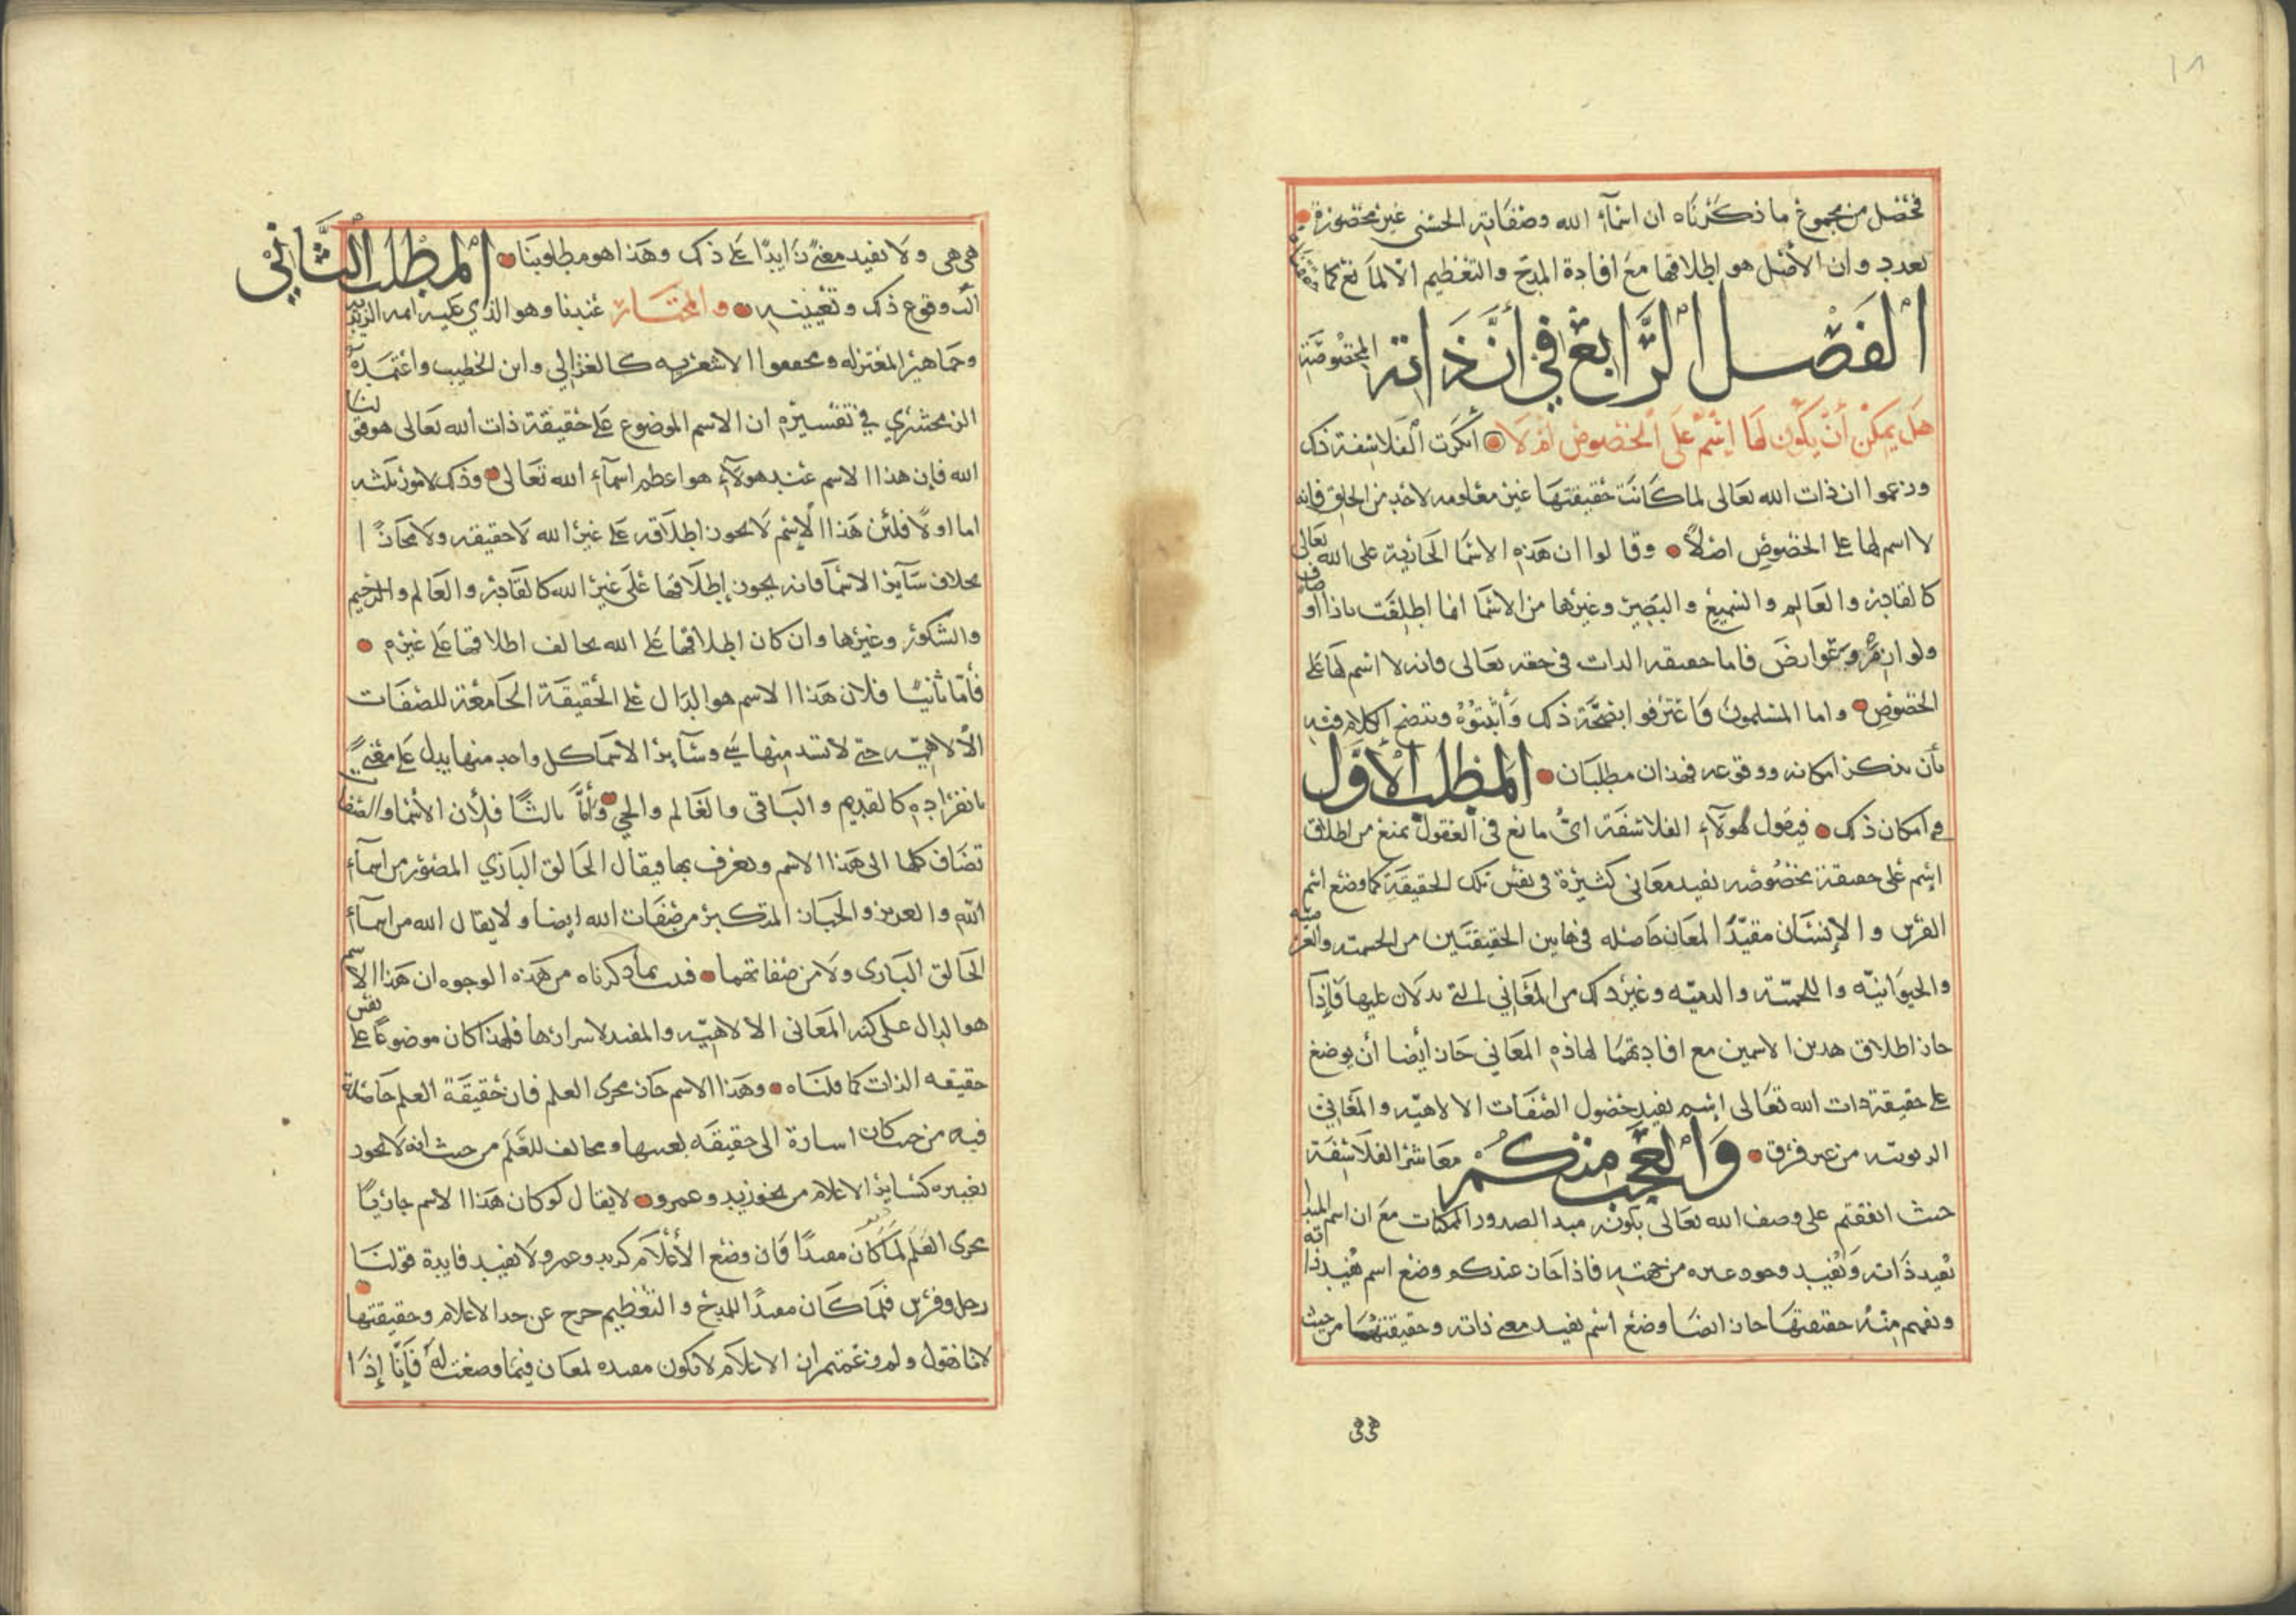 ١٨
فحصل من مجموع ما ذكرناه ان اسمآء الله وصفاته الحسنى غير محصورة
بعدد وان الأصل هو إطلاقها مع افادة المدح والتعظيم الا لمانع كما
الفصل الرابع في أن ذاته المخصوصة
هل يمكن أن يكون لها اسم على الخصوص أم لا انكرت الفلاسفة ذلك
وزعموا ان ذات الله تعالى لما كانت حقيقتها غير معلومه لاحد من الخلق فانه
لا اسم لها على الخصوص اصلاً وقالوا ان هذه الاسما الجارية على الله تعالى
كالقادر والعالم والسميع والبصير وغيرها من الاسما انما اطلقت باذا اوصاف
ولوازم وعوارض فاما حقيقه الذات في حقه تعالى فانه لا اسم لها على
الخصوص واما المسلمون فاعترفوا بصحة ذلك وأثبتوه ويتضح الكلام فيه
بأن نذكر امكانه ووقوعه فهذان مطلبان المطلب الأول
في امكان ذلك فيقول لهولآء الفلاسفة اي مانع في العقول يمنع من اطلاق
اسم على حقيقة بخصوصه يفيد معاني كثيرة في نفس تلك الحقيقة كما وضع اسم
الفرس والإنسان مفيدا لمعان حاصله في هاتين الحقيقتين من الجسميه والفرسيه
والحيوانيه واللحميه والدميه وغير ذلك من المعاني التي يدلان عليها فإذا
جاز اطلاق هذين الاسمين مع افادتهما لهاذه المعاني جاز أيضا أن يوضع
على حقيقة ذات الله تعالى إسم يفيد حصول الصفات الالاهيه والمعاني
الربوبيه من غير فرق والعجب منكم معاشر الفلاسفة
حيث اتفقتم على وصف الله تعالى بكونه مبدا لصدور الممكنات مع ان اسم المبدا
يفيد ذاته ويفيد وجود غيره من جهته فاذا جاز عندكم وضع اسم يفيد ذاته
ويفهم منه حقيقتها جاز ايضا وضع اسم يفيد معنى ذاته وحقيقتها من حيث
هي هي
هي هي ولا يفيد معنىً زايدًا على ذلك وهذا هو مطلوبنا المطلب الثاني
في وقوع ذلك وتعيينه والمختار عندنا وهو الذي عليه ايمه الزيديه
وجماهير المعتزله ومحققوا الاشعريه كالغزالي وابن الخطيب واعتمده
الزمخشري في تفسيره ان الاسم الموضوع على حقيقة ذات الله تعالى هو قولنا
الله فإن هذا الاسم عند هولآء هو اعظم اسمآء الله تعالى وذلك لامور ثلثه
اما اولاً فلئن هذا الإسم لا يجوز اطلاقه على غير الله لا حقيقه ولا مجازًا
بخلاف سآير الاسما فانه يجوز إطلاقها على غير الله كالقادر والعالم والرحيم
والشكور وغيرها وان كان اطلاقها على الله يخالف اطلاقها على غيره
فأما ثانيًا فلان هذا الاسم هو الدال على الحقيقة الجامعة للصفات
الألاهيه حتى لا تشذ منها شي وسآير الاسما كل واحد منها يدل على معنىً
بانفراده كالقديم والباقي والعالم والحي وأما ثالثًا فلأن الأسما والصفات
تضاف كلها الى هذا الاسم وتعرف بها فيقال الخالق الباري المصور من اسمآء
الله والعزيز والجبار المتكبر من صفات الله ايضا ولا يقال الله من اسمآء
الخالق الباري ولا من صفاتهما فدلت بما ذكرناه من هذه الوجوه ان هذا الاسم
هو الدال على كنه المعاني الالاهيه والمفيد لاسرارها فلهذا كان موضوعًا على نفس
حقيقه الذات كما قلناه وهذا الاسم جار مجرى العلم فان حقيقة العلم حاصلة
فيه من حيث كان اشارة الى حقيقه بعينها ومخالف للعلم من حيث انه لا يجوز
تغييره كساير الاعلام من نحو زيد وعمرو لا يقال لو كان هذا الاسم جاريًا
مجرى العلم لما كان مفيدًا فان وضع الأعلام كزيد وعمرو لا تفيد فايدة قولنا
رجل وفرس فلما كان مفيدًا للمدح والتعظيم خرج عن حد الاعلام وحقيقتها
لانا نقول ولم زعمتم ان الاعلام لا تكون مفيده لمعان فيما وضعت له فإنا إذا